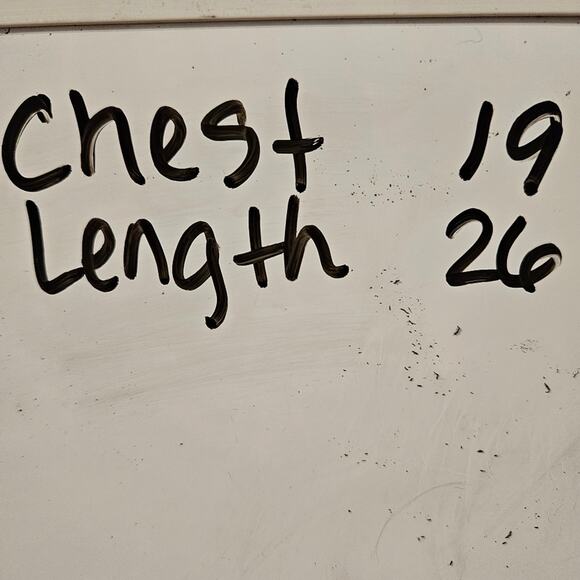 Chest 19
Length 26